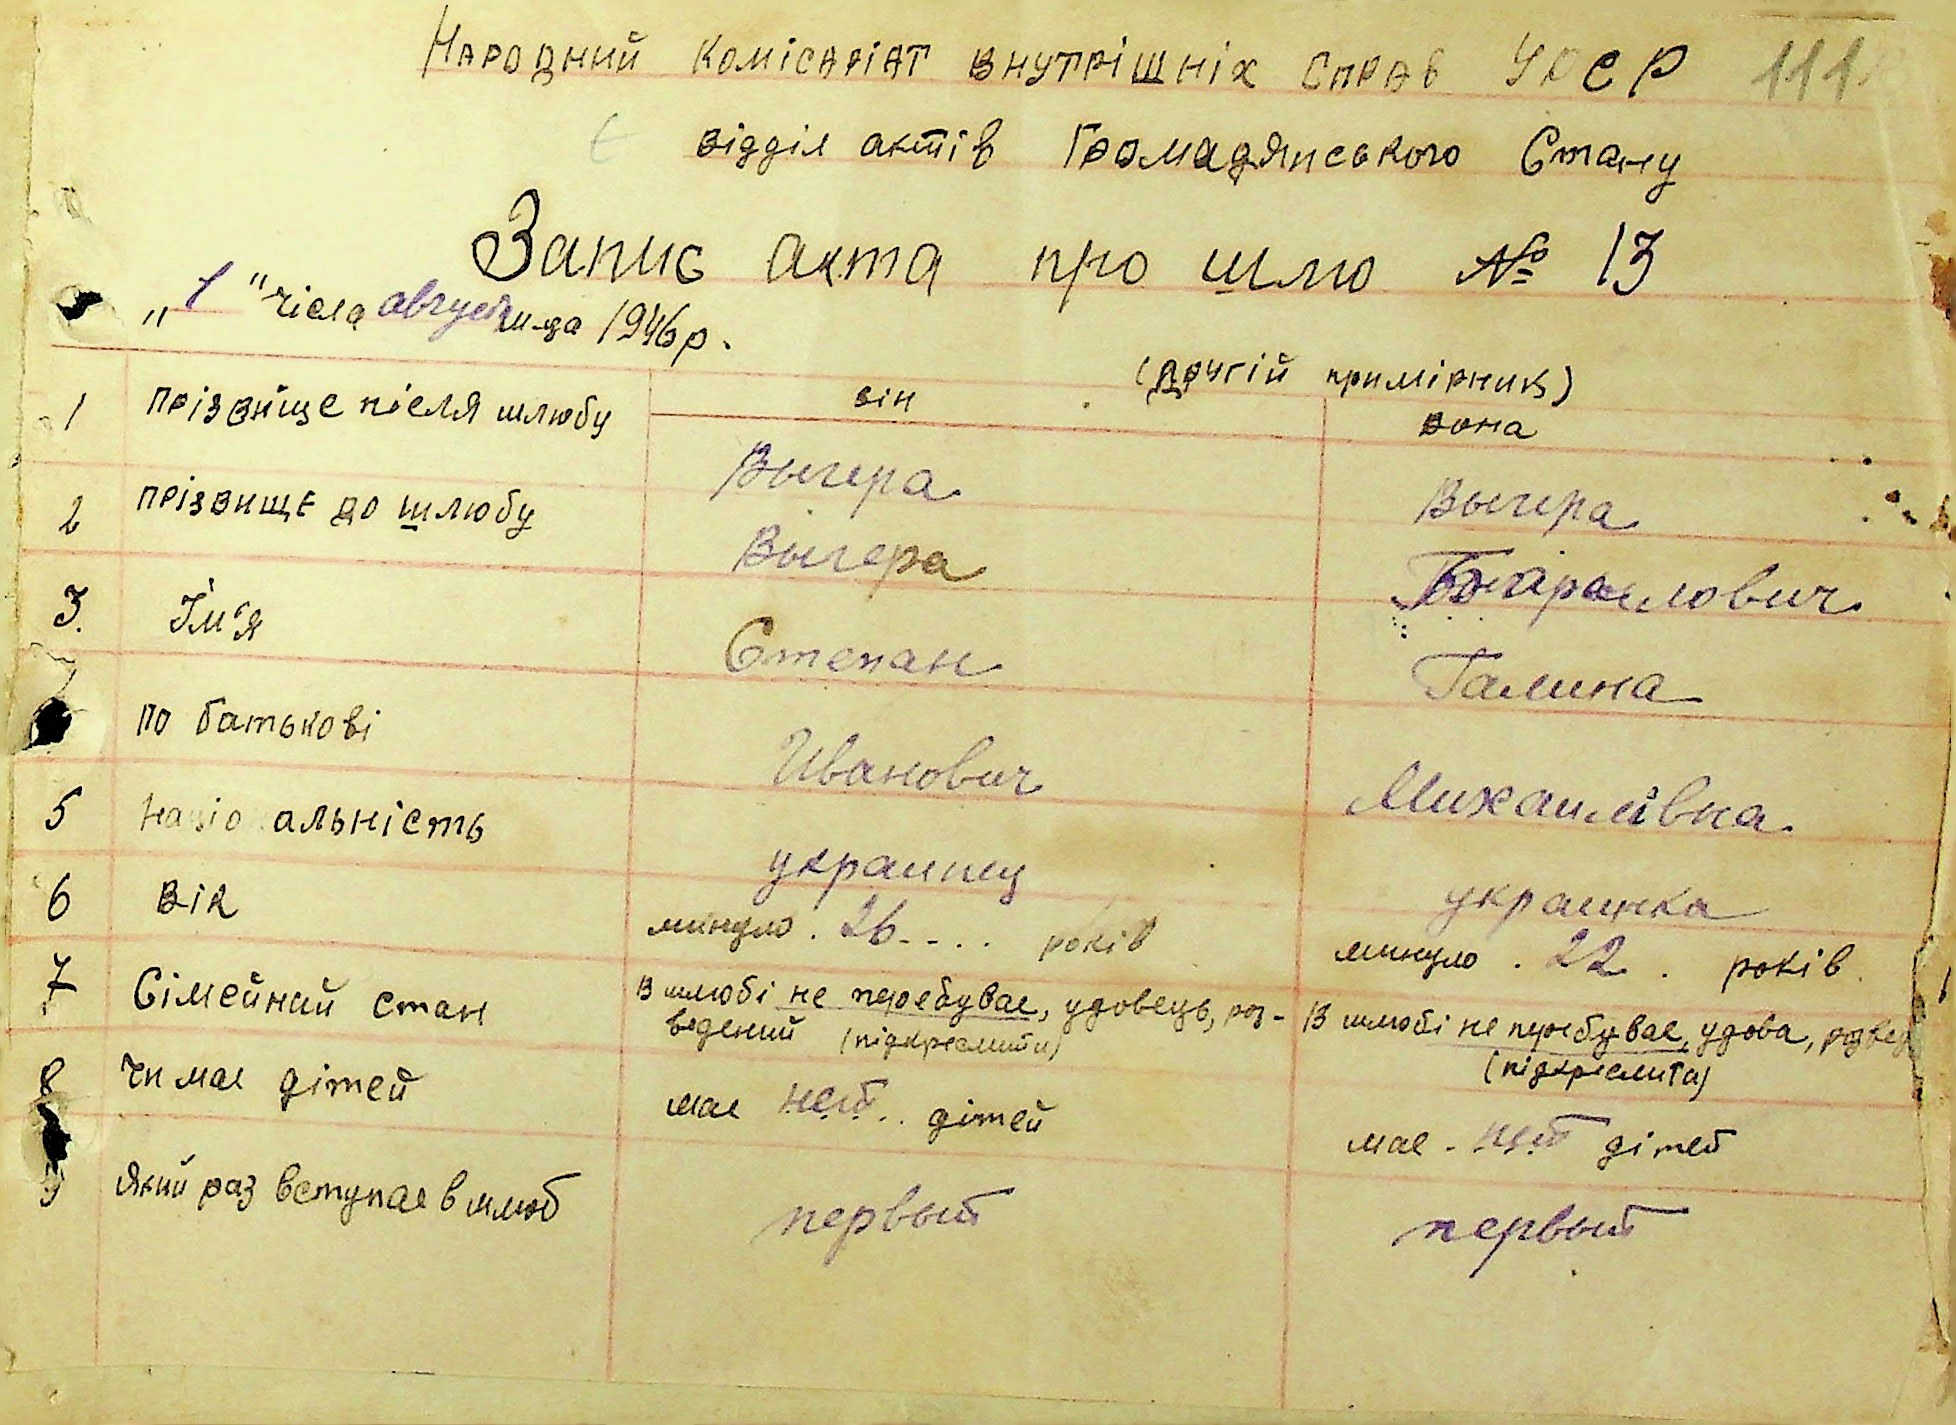 Народний комісаріат внутрішніх справ УРСР 111
відділ актів Громадянського Стану
Запис акта про шлю № 13
„1" числа август м-ца 1946 р.
(другій примірник)
він вона
1 прізвище після шлюбу Выгера Выгера
2 прізвище до шлюбу Выгера
3. Ім'я Степан Галина
по батькові Иванович Михайлівна
5 Національність украинец украинка
6 вік минуло . 26 . . . . років минуло . 22 . років
7 Сімейний стан В шлюбі не перебувае, удовець, роз-
ведений (підкреслити)
В шлюбі не перебувае, удова, розвед
(підкреслити)
8 Чи мае дітей мае нет . . дітей мае - нет дітей
9 який раз вступае в шлюб первый первый